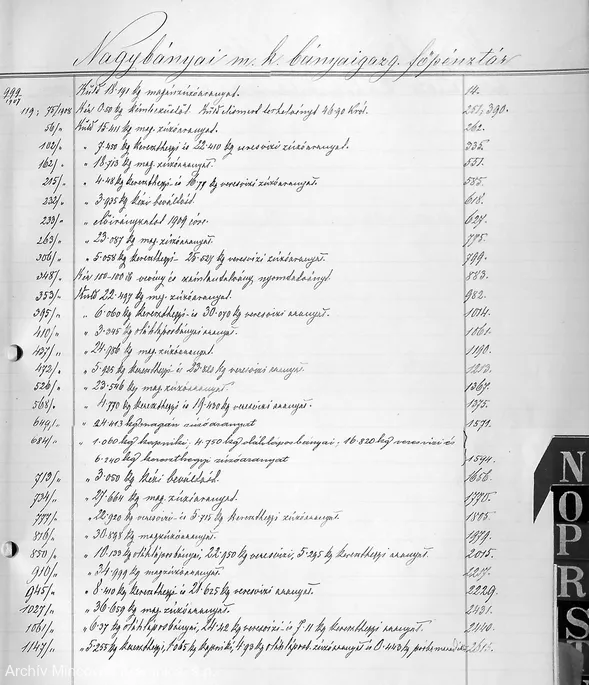 Nagybányai m. k. bányaigazg. főpénztár
999/1907 Küld 18·191 kg magánzúzóaranyat. 14.
119; 75/1908 Kér 0·50 kg 251, 390.
56/" Küld 15·411 kg mag. zúzóaranyat. 262.
102/" " 7·450 kg kereszthegyi és 22·410 kg veresvizi zúzóaranyat. 335.
162/" " 18·713 kg mag. zúzóaranyat. 551.
215/" " 4·48 kg kereszthegyi és 16·77 kg veresvizi zúzóaranyat. 585.
232/" " 3·935 kg kézi beváltást. 618.
233/" " előirányzatot 1909 évre. 627.
263/" " 23·087 kg mag. zúzóaranyat. 775.
306/" " 5·058 kg kereszthegyi- 26·524 kg veresvizi zúzóaranyat. 799.
348/" Kér 100-100 nyomtatványt 883.
353/" Küld 22·497 kg mag. zúzóaranyat. 982.
395/" " 6·060 kg kereszthegyi és 30·070 kg veresvizi aranyat. 1014.
410/" " 3·345 kg oláhláposbányai aranyat. 1061.
427/" " 24·986 kg mag. zúzóaranyat. 1190.
472/" " 5·825 kg kereszthegyi és 23·820 kg veresvizi aranyat. 1213.
526/" " 23·546 kg mag. zúzóaranyat. 1367.
568/" " 4·770 kg kereszthegyi és 19·430 kg veresvizi aranyat. 1375.
649/" " 24·413 kg magán zúzóaranyat 1571.
684/" " 1·060 kg kapniki, 4·750 kg oláhláposbányai, 16·820 kg veresvizi és
6·240 kg kereszthegyi zúzóaranyat 1594.
713/" " 3·050 kg kézi beváltást. 1656.
734/" " 27·664 kg mag. zúzóaranyat. 1770.
777/" " 22·920 kg veresvizi- és 5·715 kg kereszthegyi zúzóaranyat. 1805.
816/" " 30·878 kg mag. zúzóaranyat. 1979.
850/" " 10·133 kg oláhláposbányai, 22·950 kg veresvizi, 5·245 kg kereszthegyi aranyat. 2015.
910/" " 34·999 kg mag. zúzóaranyat. 2217.
945/" " 8·410 kg kereszthegyi és 21·625 kg veresvizi aranyat. 2229.
1027/" " 36·659 kg mag. zúzóaranyat. 2431.
1061/" " 6·37 kg oláhláposbányai, 24·42 kg veresvizi- és 7·11 kg kereszthegyi aranyat. 2440.
1147/" " 5·255 kg kereszthegyi, 1·065 kg kapniki, 4·93 kg oláhláposb. zúzóaranyat és 0·443 kg
N
O
P
R
S
T